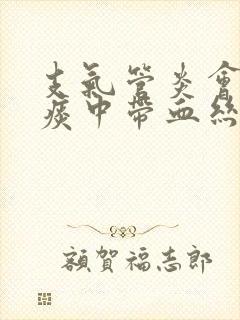 支氣管炎會
痰中帶血絲
額賀福志郎